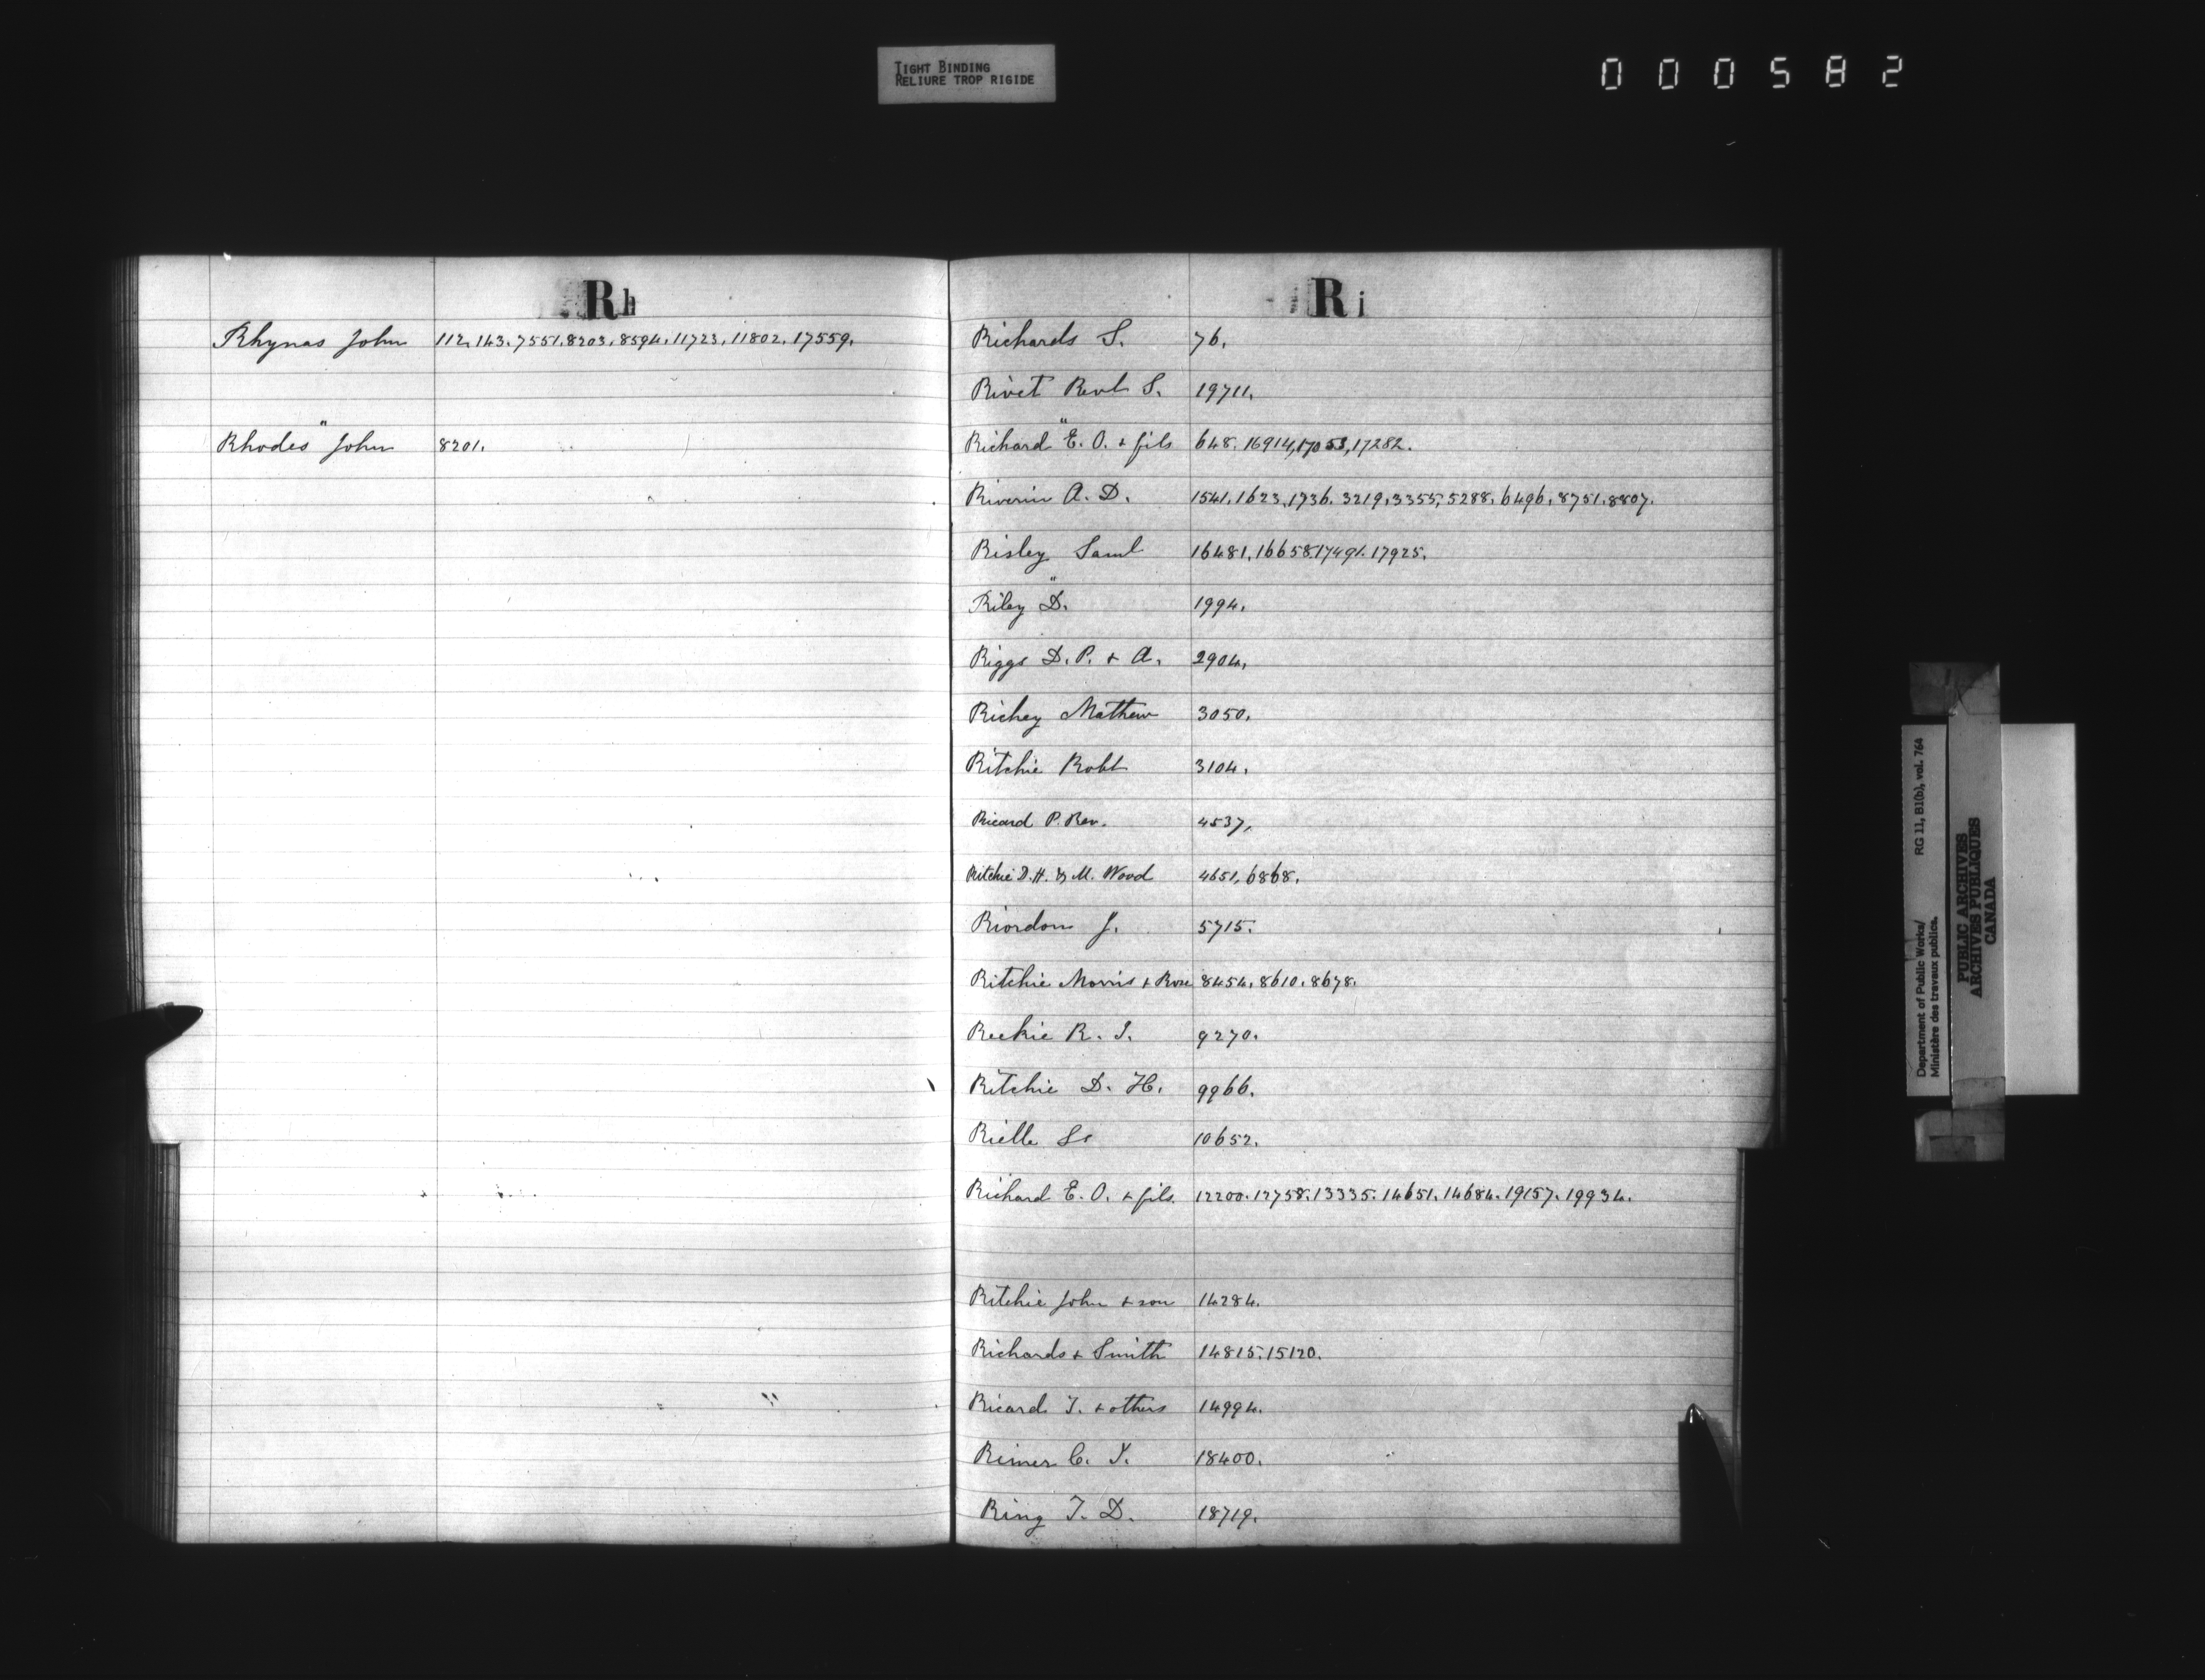 TIGHT BINDING
RELIURE TROP RIGIDE
000582
Rh
Rhynas John 112, 143, 7551, 8203, 8594, 11723, 11802, 17559.
"
Rhodes John 8201.
Ri
Richards S. 76.
Rivet Revd S. 19711.
"
Richard E. O. + fils 648. 16914, 17053, 17282.
Riverin A. D. 1541. 1623. 1736. 3219. 3355, 5288. 6496. 8751. 8807.
Risley Saml 16481, 16658. 17491. 17925.
"
Riley D. 1994.
Riggs D. P. + A. 2904.
Richey Mathew 3050.
Ritchie Robt 3104.
Ricard P. Rev. 4537,
Ritchie D. H. & M. Wood 4651, 6868.
Riordon J. 5715.
Ritchie Morris + Rose 8454, 8610. 8678.
Reekie R. J. 9270.
Ritchie D. H. 9966.
Rielle 10652.
Richard E. O. + fils. 12200. 12758. 13335. 14651. 14684. 19157. 19934.
Ritchie John + son 14284.
Richards + Smith 14815. 15120.
Ricard T. + others 14994.
Rimer C. Y. 18400.
Ring T. D. 18719.
Department of Public Works/ RG 11, B1(b), vol. 764
Ministère des travaux publics.
PUBLIC ARCHIVES
ARCHIVES PUBLIQUES
CANADA